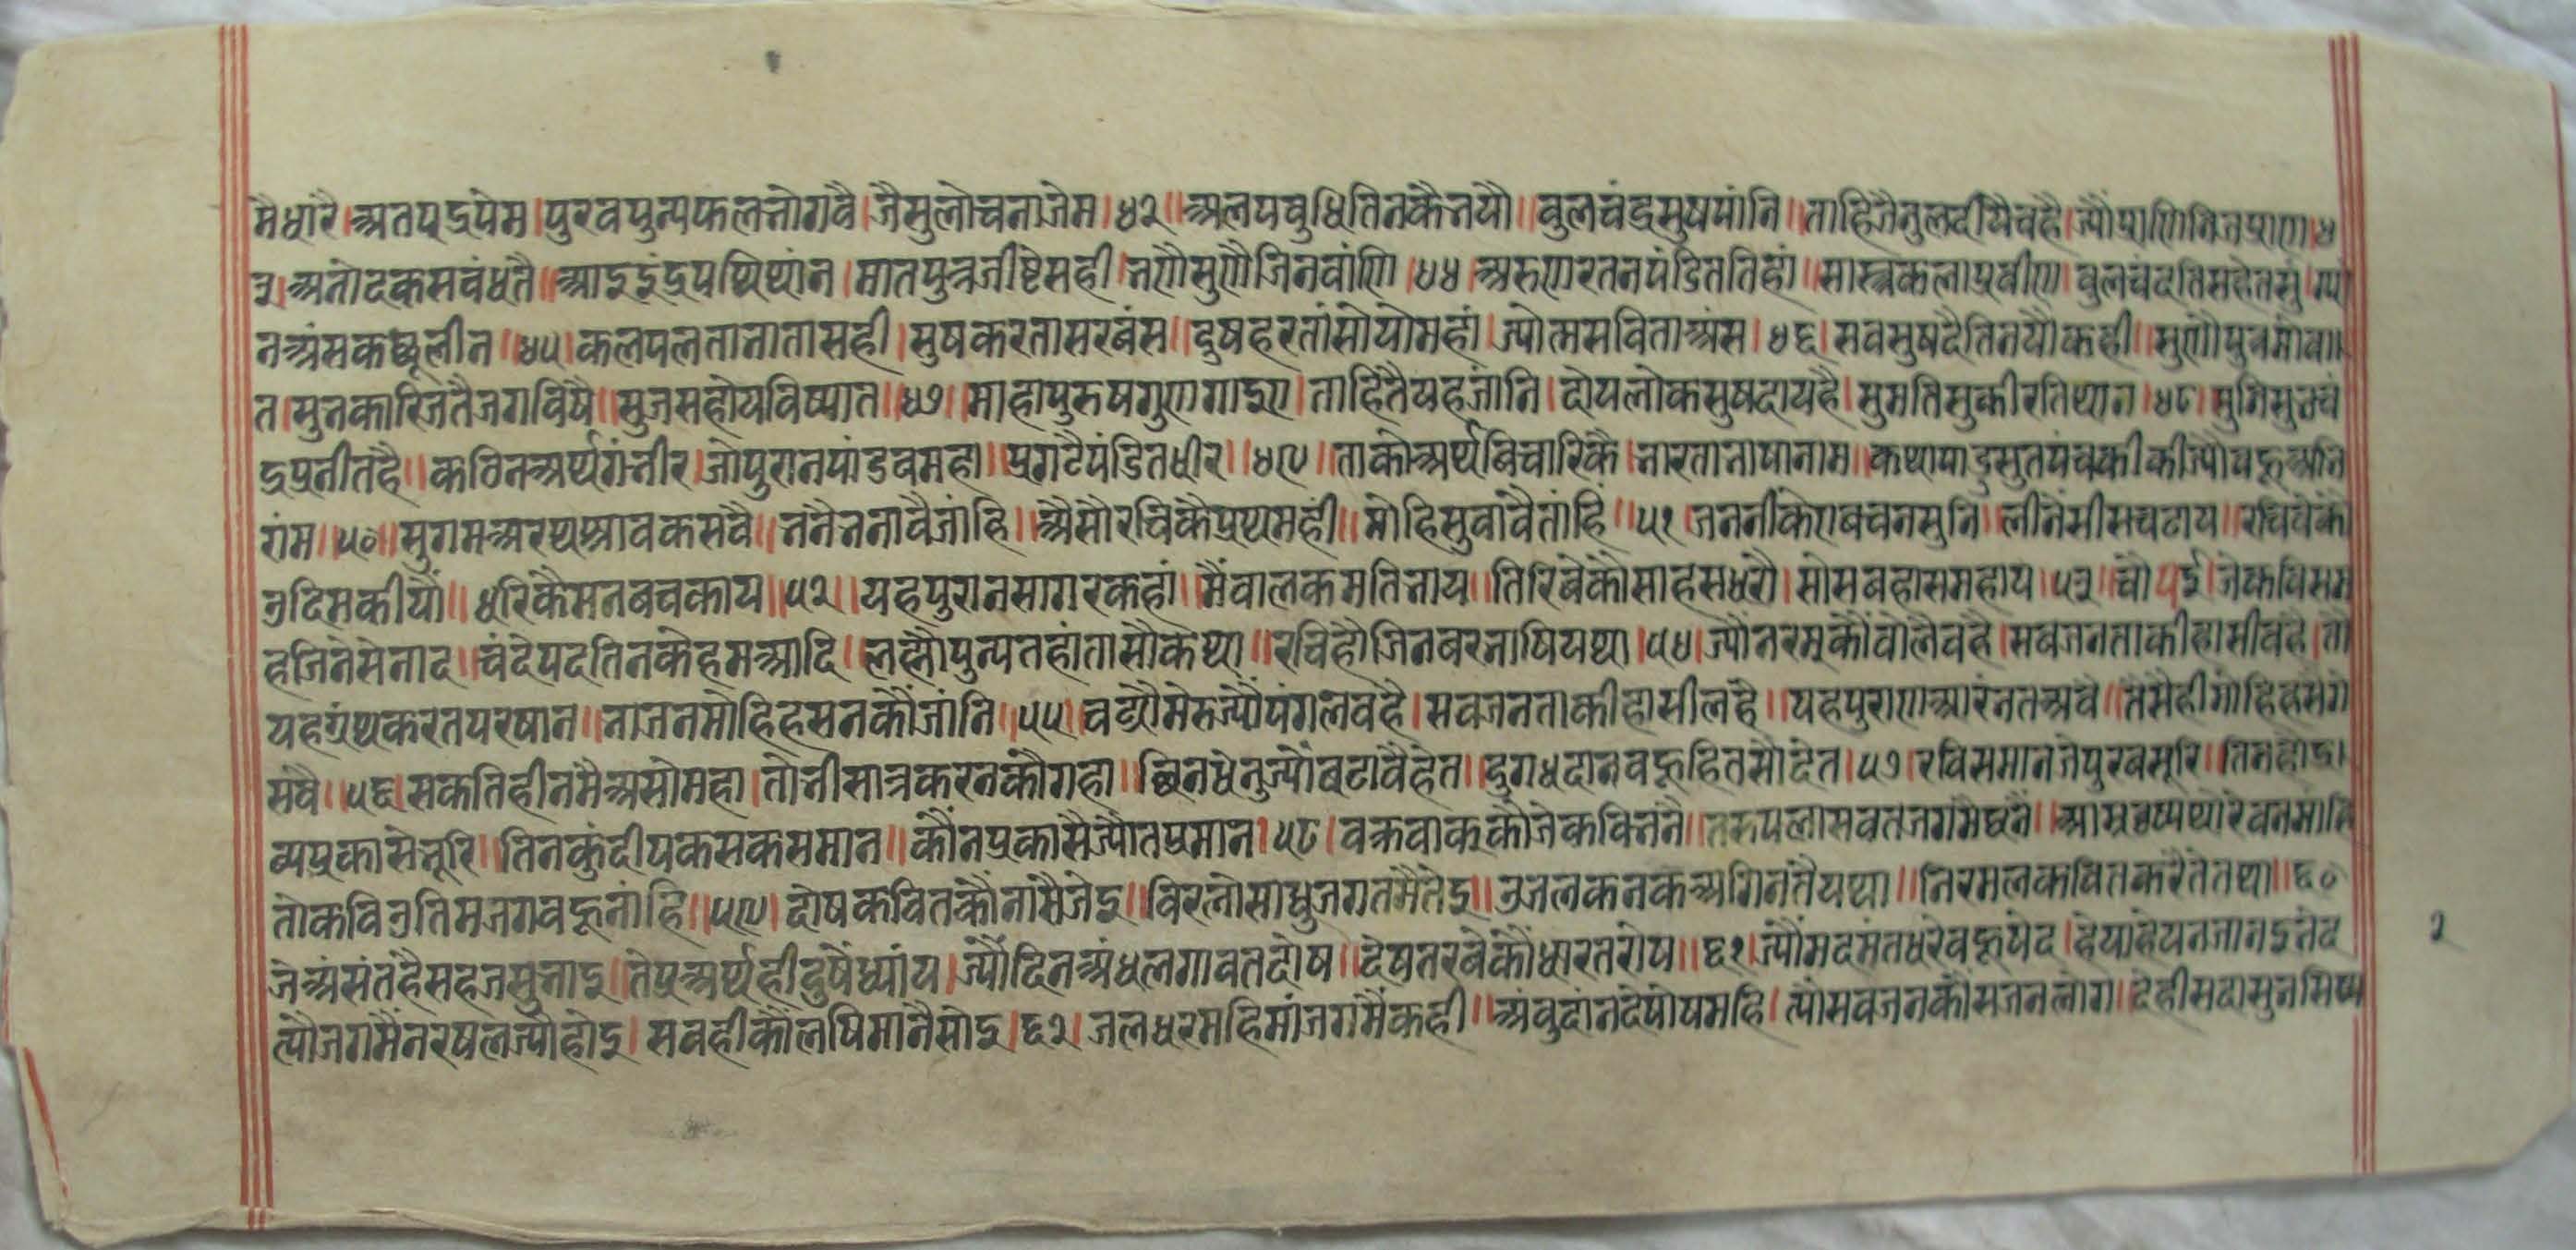 मैधारै।अतपद्रुपेम।पुरवपुन्यफलभोगवै।जैसुलोचनाजेम।४२॥अलपबुधितिनकैभयौ॥बुलचंद्रसुषषांनि॥ताहिजैनुलदीयैवहै।ज्यौंप्राणिनिजप्राण।४
३।अनोदकसबंधतै॥आइइंद्रपष्थिथांन।मातपुत्रजीष्टेसही।भणैसुणैजिनवांणि।४४।अरुणरतनपंडिततिहां॥सास्त्रकलाप्रवीण।बुलचंदतिसहेतसुं।ग्या
नअंसकछूलीन॥४५।कलपलतामातासही।सुषकरतासरबंस॥दुषहरतांसोयोमहां।ज्योत्मसविताअंस।४६।सबसुषदैतिनयौकही॥सुणौंपुत्रमोबा॥
त।सुनकारिजतैजगविषै॥सुजसहोयविष्यात॥४७॥माहापुरुषगुणगाइए।ताहितैयहजांनि।दोयलोकसुषदायहै।सुमतिसुकीरतिथान।४८।सुनिसुभचं
द्रप्रनीतहै॥कठिनअर्थगंभीर।जोपुरानपांडवमहा॥प्रगटैपंडितधीर॥४९॥ताकोअर्थबिचारिकै।भारताभाषानाम॥कथापांडुसुतपंचकीकीज्यौबहूअभि
रांम॥५०॥सुगमअरथश्रावकसबै॥भनैभनावैजांहि॥अैसौरचिकैप्रथमही॥मोहिसुवावैताहिं॥५१ जननीकेएबचनसुनि॥लीनैसीसचढाय॥रचिवेकौं
उदिमकीयौं॥धरिकैमनबचकाय॥५२॥यहपुरानसागरकहां॥मैंबालकमतिभाय॥तिरिबेकौंसाहसधरौ।सोसबहासमहाय।५३॥चौपई।जेकबिसम
हजिनसेनाद॥चंदेपदतिनकेहमआदि॥लह्यौपुन्यतहांतासौंकथ्या॥रचिहौजिनबरभाषियथा।५४।ज्यौनरमूकौंबोलैवहै।सबजनताकीहासीवहै।तौ
यहग्रंथकरतपरषान॥भाजनमोहिहसनकौंजांनि॥५५॥चढ्यौमेरुज्यौंपंगलवहै।सबजनताकीहासीलहै॥यहपुराणआरंभतअबै॥तैसैहीमोहिहसेगे
सबै॥५६॥सकतिहीनमैअसोमहा।तोभीसात्रकरनकौगहा॥छिनधेनुज्योंबटावैहेत॥दुगधदानबहूहितसौंदेत।५७।रबिसमानजेपुरबसूरि॥तिनहोद्र।
व्यप्रकासेभूरि॥तिनकुंदीपकसकसमान॥कौनप्रकासैज्यौतप्रमान।५८।बक्रवाककौंजेकबिभनै॥तरुपलासवतजगमैघनै॥आम्रबृष्यथोरेबनमांहि
तोकबिउतिमजगबहूनांहि॥५९॥दोषकबितकौंनांसैजेइ॥बिरलोसाधुजगतमैतेइ॥उजलकनकअगिनतैयथा॥निरमलकबितकरैतेतथा॥६०
जेअंसंतहैसहजसुभाइ॥तेप्रअर्थहीदुषैंध्यांय।ज्यौंदिनअंधलगावतदोष॥देषतरबेकौंधारतरोष॥६१।ज्यौंमदमंतधरेबहूषेद।हेयाहेयनजानइभेद
त्यौंजगमैंनरषलज्यौहोइ।सबहीकौंलषिमानैसोइ।६२।जलधरमहिमांजगमैंकही॥अंबुदांनदेषोषमहि।त्यौंसबजनकौंसजनलोग।देहीसदासुनसिष्य
२